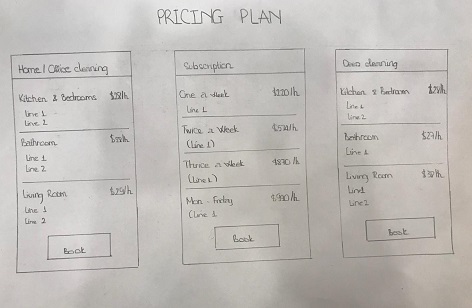 PRICING PLAN
Home / Office cleaning
Kitchen & Bedrooms $28/h
Line 1
Line 2
Bathroom
Line 1
Line 2
Living Room $25/h
Line 1
Line 2
Book
Subscription
One a Week $220/h
Line 1
Twice a Week
(Line 1)
Thrice a Week
(Line 1)
Mon - Friday
(Line 1
Book
cleaning
Kitchen & Bedroom
Line 1
Line 2
Bathroom $27/h
Line 1
Living Room
Line 1
Line 2
Book